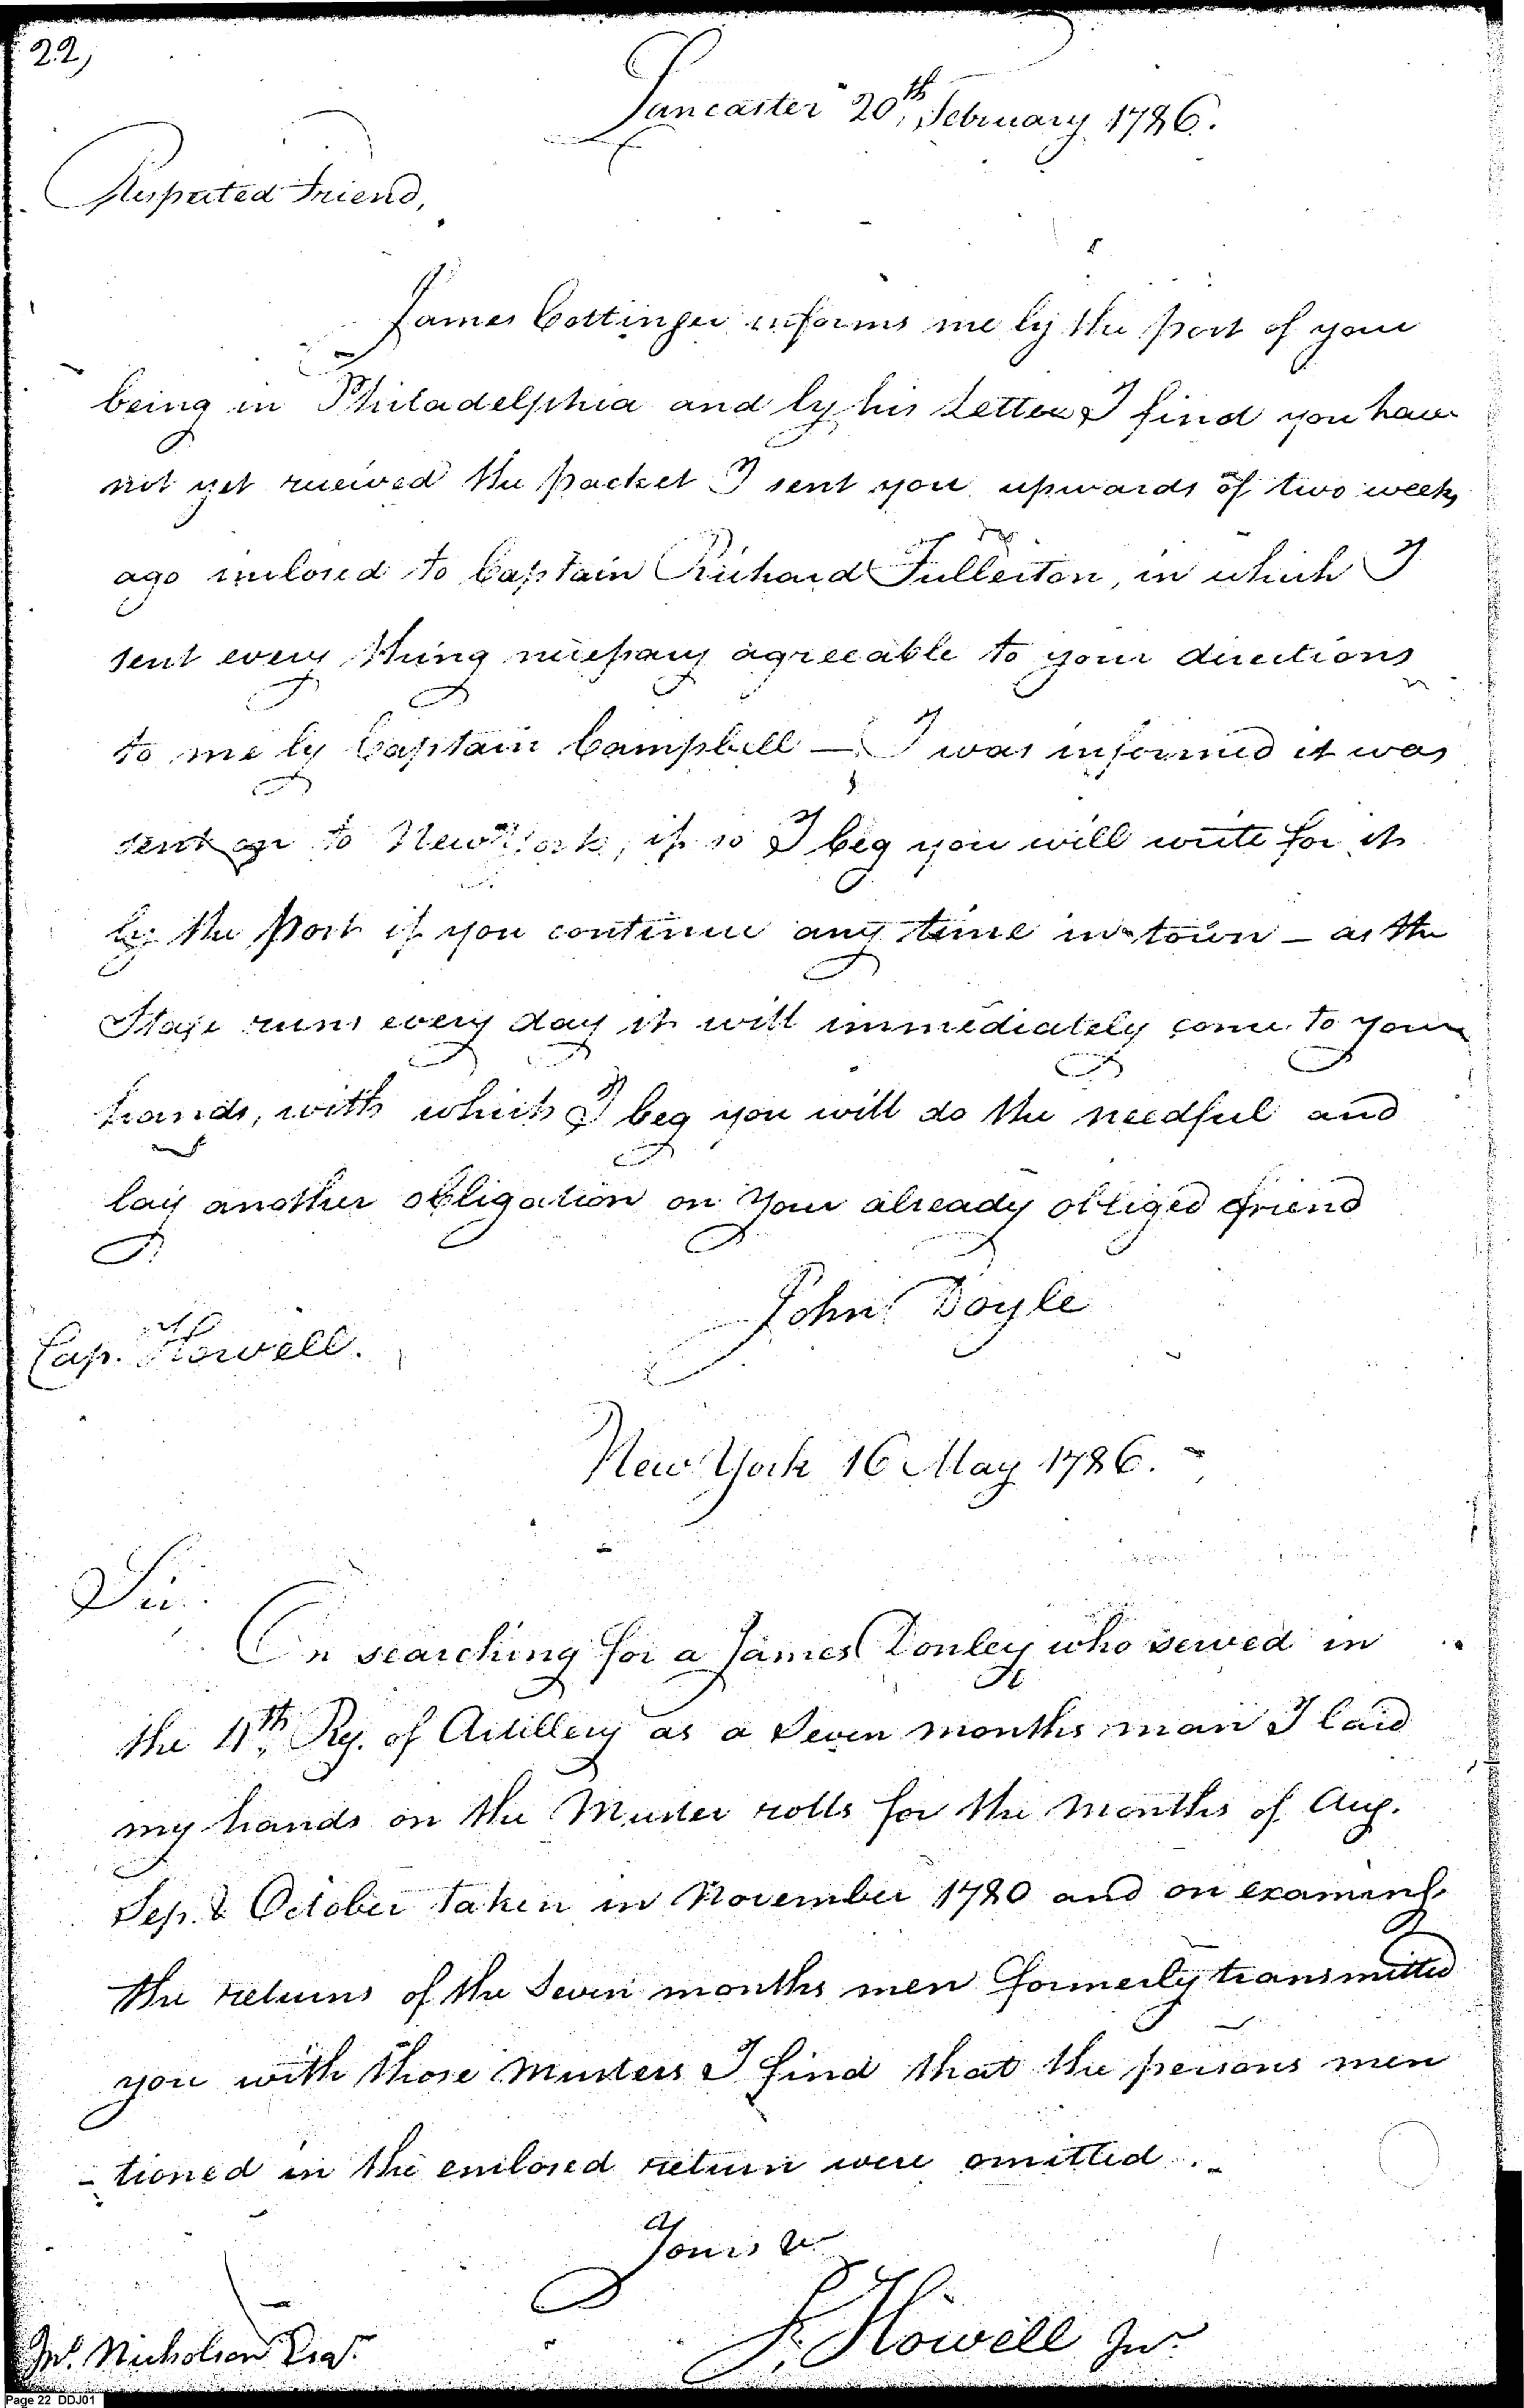 22,
Lancaster 20th, February 1786.
Respected Friend,
James Cottinger informs me by the post of your
being in Philadelphia and by his Letter I find you have
not yet received the packet I sent you upwards of two weeks
ago inclosed to Captain Richard Fullerton, in which I
sent every thing necessary agreeable to your directions
to me by Captain Campbell — I was informed it was
sent on to New York, if so I beg you will write for it
by the Post if you continue any time in town — as the
Stage runs every day it will immediately come to your
hands, with which I beg you will do the needful and
lay another obligation on Your already obliged friend
John Doyle
Cap. Howell.
New York 16 May 1786.
Sir.
On searching for a James Donley who served in
the 4th, Reg. of Artillery as a Seven months man I laid
my hands on the Muster rolls for the Months of Aug.
Sep. & October taken in November 1780 and on examing.
the returns of the Seven months men formerly transmitted
you with those Musters I find that the persons men
-tioned in the enclosed return were omitted. -
Yours &
J. Howell Jnr
Jno. Nicholson Esqr.
Page 22 DDJ01